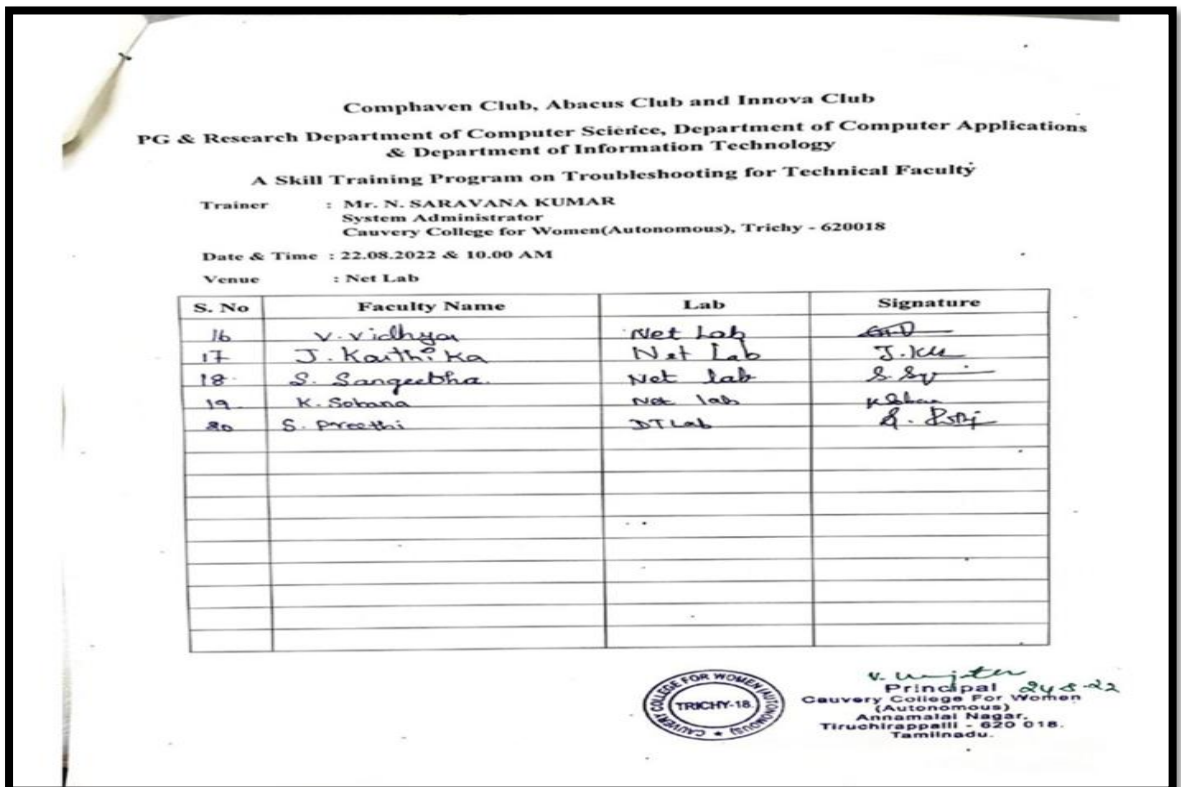 Comphaven Club, Abacus Club and Innova Club
PG & Research Department of Computer Science, Department of Computer Applications
& Department of Information Technology
A Skill Training Program on Troubleshooting for Technical Faculty
Trainer : Mr. N. SARAVANA KUMAR
System Administrator
Cauvery College for Women(Autonomous), Trichy - 620018
Date & Time : 22.08.2022 & 10.00 AM
Venue : Net Lab
S. No Faculty Name Lab Signature
16 V. Vidhya Net Lab
17 J. Karthika Net Lab
18. S. Sangeetha. Net lab
19. K. Sobana Net lab
20 S. Preethi DT Lab
CAUVERY COLLEGE FOR WOMEN (AUTONOMOUS)
TRICHY-18.
Principal 24-8-22
Cauvery College For Women
(Autonomous)
Annamalai Nagar,
Tiruchirappalli - 620 018.
Tamilnadu.